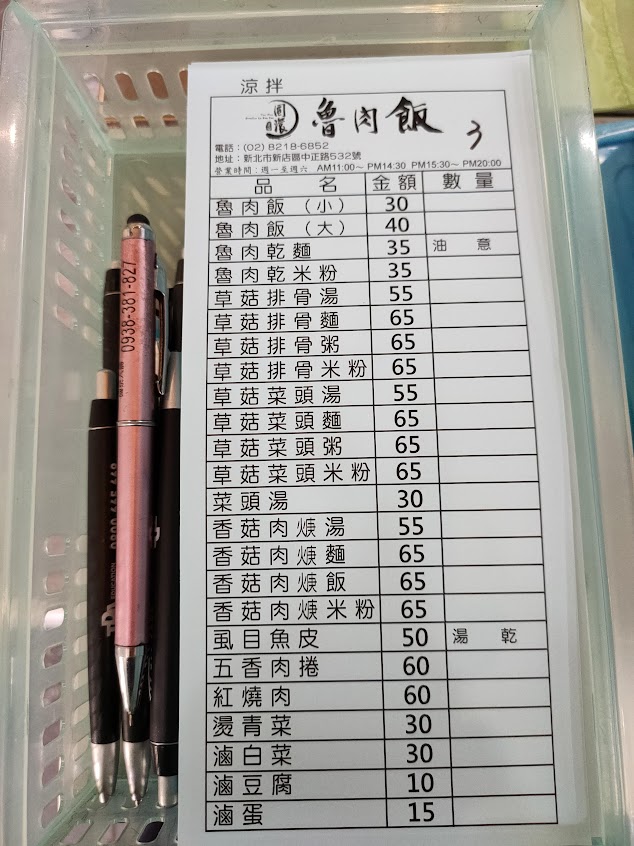 涼拌
圓環 魯肉飯 3
電話：(02) 8218-6852
地址：新北市新店區中正路532號
營業時間：週一至週六 AM11:00～PM14:30 PM15:30～PM20:00
品名 金額 數量
魯肉飯（小） 30
魯肉飯（大） 40
魯肉乾麵 35 油 意
魯肉乾米粉 35
草菇排骨湯 55
草菇排骨麵 65
草菇排骨粥 65
草菇排骨米粉 65
草菇菜頭湯 55
草菇菜頭麵 65
草菇菜頭粥 65
草菇菜頭米粉 65
菜頭湯 30
香菇肉焿湯 55
香菇肉焿麵 65
香菇肉焿飯 65
香菇肉焿米粉 65
虱目魚皮 50 湯 乾
五香肉捲 60
紅燒肉 60
燙青菜 30
滷白菜 30
滷豆腐 10
滷蛋 15
0938-381-827
EDUCATION